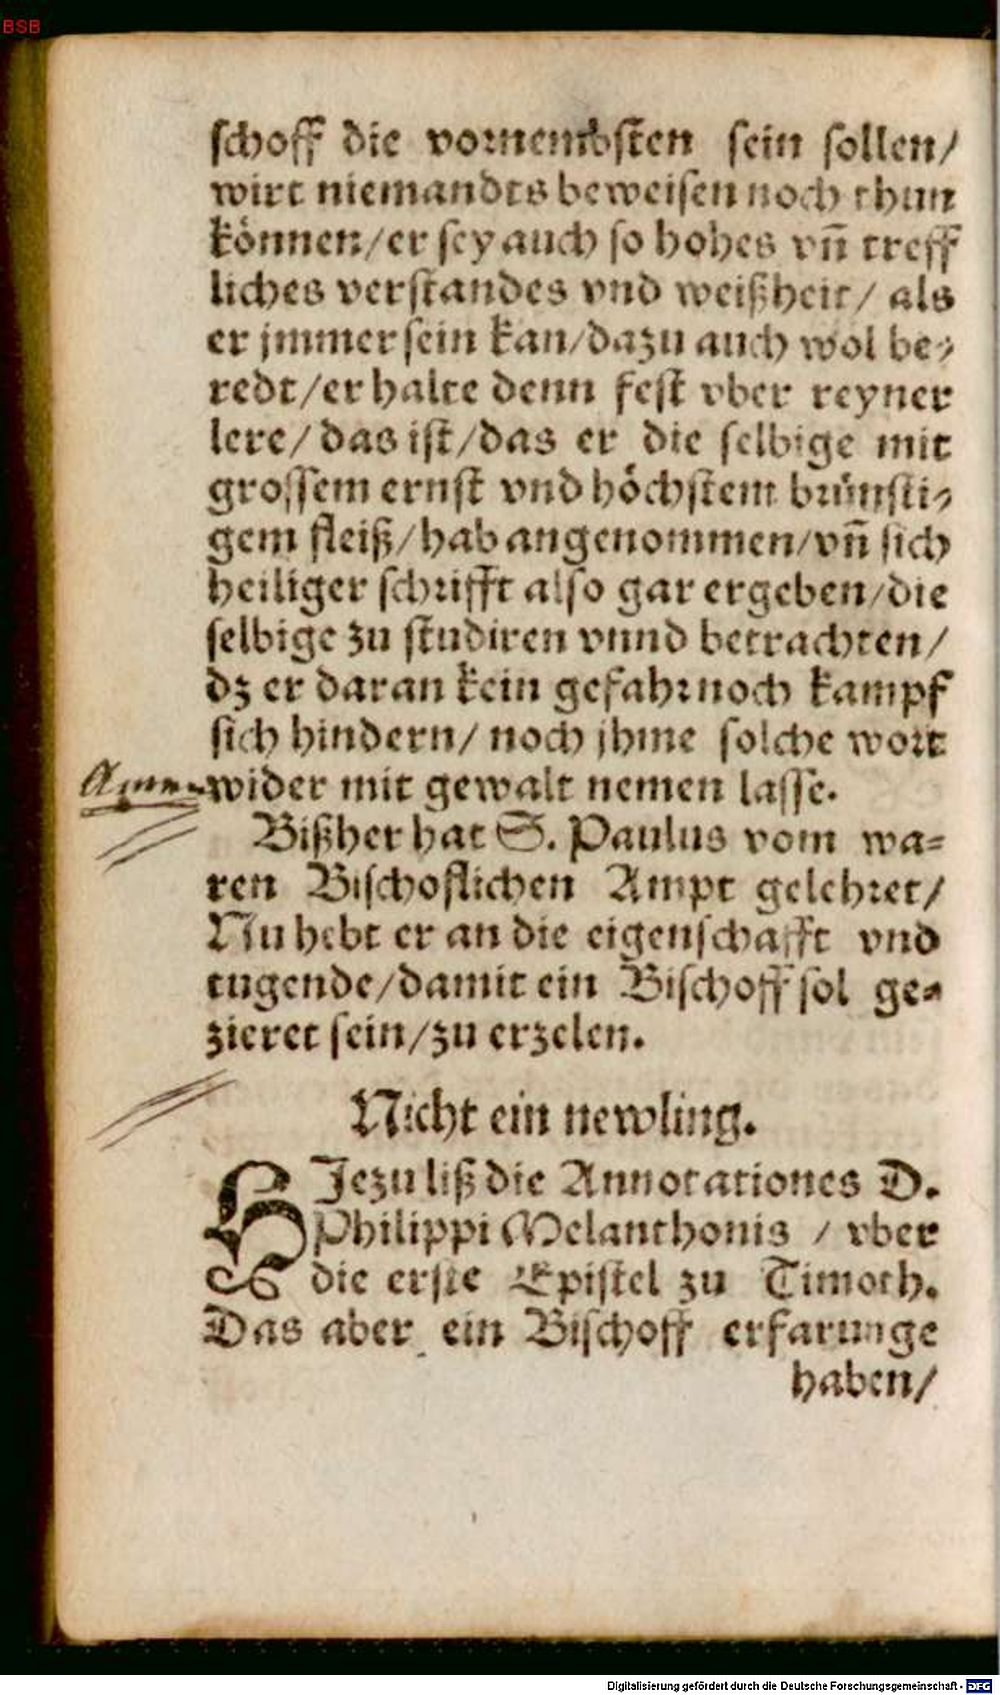 BSB
schoff die vornembsten sein sollen/
wirt niemandts beweisen noch thun
können/er sey auch so hohes vñ treff
liches verstandes vnd weißheit/ als
er jmmer sein kan/dazu auch wol be⸗
redt/er halte denn fest vber reyner
lere/das ist/das er die selbige mit
grossem ernst vnd höchstem brünsti⸗
gem fleiß/hab angenommen/vñ sich
heiliger schrifft also gar ergeben/die
selbige zu studiren vnnd betrachten/
dz er daran kein gefahr noch kampf
sich hindern/ noch jhme solche wort
Amen wider mit gewalt nemen lasse.
Bißher hat S. Paulus vom wa⸗
ren Bischoflichen Ampt gelehret/
Nu hebt er an die eigenschafft vnd
tugende/damit ein Bischoff sol ge⸗
zieret sein/zu erzelen.
Nicht ein newling.
HJezu liß die Annotationes D.
Philippi Melanthonis / vber
die erste Epistel zu Timoth.
Das aber ein Bischoff erfarunge
haben/
Digitalisierung gefördert durch die Deutsche Forschungsgemeinschaft - DFG